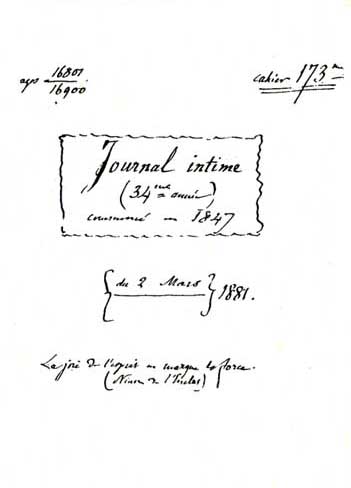 pages 16801
16900
cahier 173me
Journal intime
(34me année)
commencé en 1847
{du 2 Mars} 1881.
La joie de l'esprit en marque la force.
(Ninon de l'Enclos)